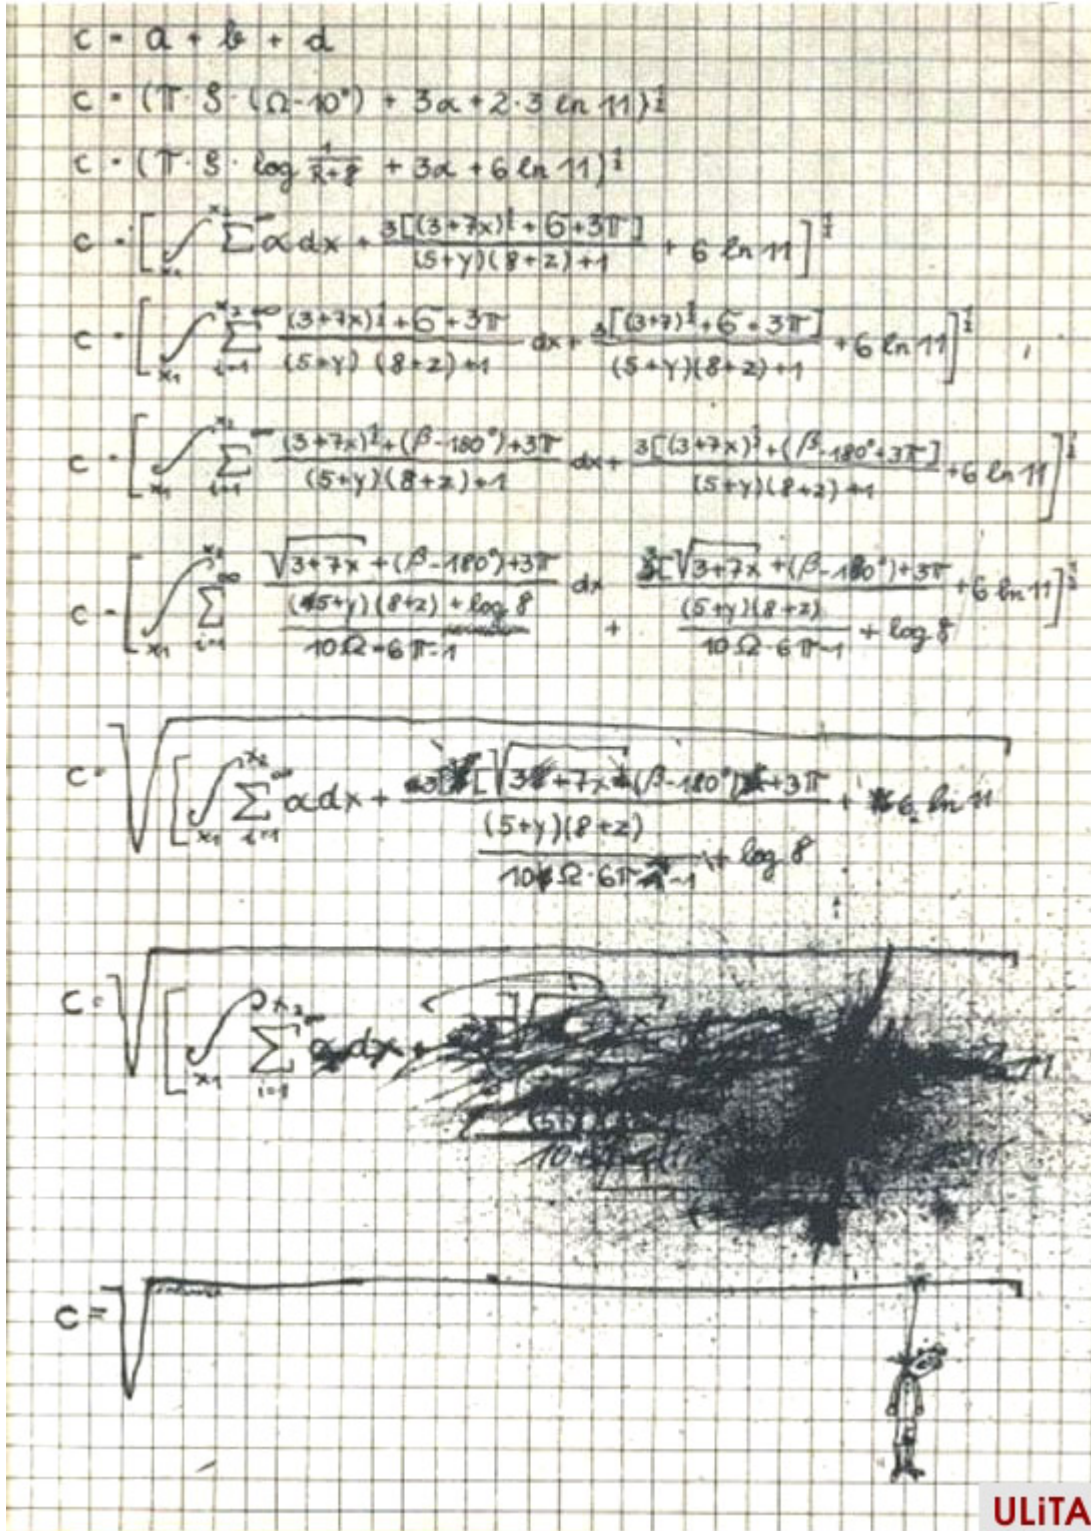 c = a + b + d
c = (π · S · (Ω-10°) + 3α + 2·3 ln 11)^½
c = (π · S · log + 3α + 6 ln 11)^½
c = [∫x₁ x₂ Σ ∞ α dx + 3[(3+7x)^½ + 6 + 3π] / (5+y)(8+z)+1 + 6 ln 11]^½
c = [∫x₁ x₂ Σ i=1 +∞ (3+7x)^½ + 6 + 3π / (5+y) (8+z)+1 dx + 3[(3+7)^½ + 6 + 3π] / (5+y)(8+z)+1 + 6 ln 11]^½
c = [∫x₁ x₂ Σ i=1 ∞ (3+7x)^½+(β-180°)+3π / (5+y)(8+z)+1 dx + 3[(3+7x)^½+(β-180°+3π] / (5+y)(8+z)+1 +6 ln 11]^½
c = [∫x₁ x₂ Σ i=1 ∞ √3+7x + (β-180°)+3π / (5+y)(8+z) + log 8 / 10Ω-6π-1 dx + 3[√3+7x + (β-180°)+3π / (5+y)(8+z) / 10Ω·6π-1 + log 8 +6 ln 11]^½
c = √[∫x₁ x₂ Σ i=1 ∞ α dx + 3[√3+7x (β-180°) +3π / (5+y)(8+z) / 10Ω·6π-1 + log 8 + 6 ln 11
c = √[∫x₁ x₂ Σ i=1 ∞ α dx + 11
c = √
ULiTA